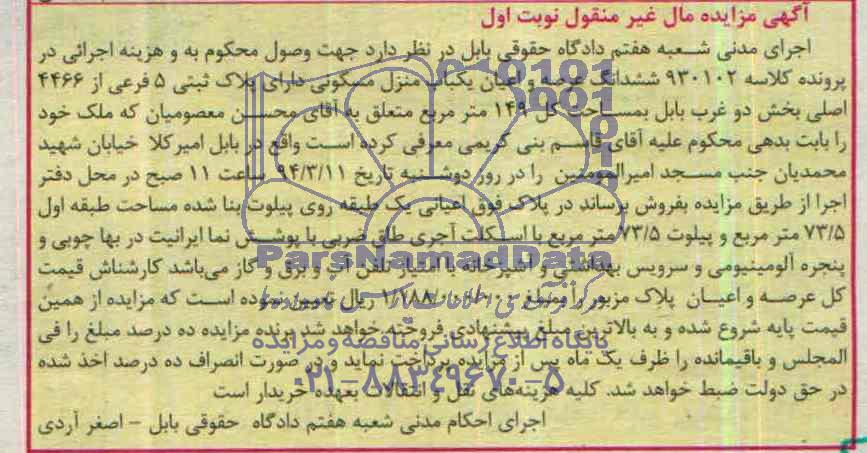 آگهی مزایده مال غیر منقول نوبت اول
اجرای مدنی شعبه هفتم دادگاه حقوقی بابل در نظر دارد جهت وصول محکوم به و هزینه اجرائی در
پرونده کلاسه ۹۳۰۱۰۲ ششدانگ عرصه و اعیان یکباب منزل مسکونی دارای پلاک ثبتی ۵ فرعی از ۴۴۶۶
اصلی بخش دو غرب بابل بمساحت کل ۱۴۹ متر مربع متعلق به آقای محسن معصومیان که ملک خود
را بابت بدهی محکوم علیه آقای قاسم بنی کریمی معرفی کرده است واقع در بابل امیرکلا خیابان شهید
محمدیان جنب مسجد امیرالمومنین را در روز دوشنبه تاریخ ۹۴/۳/۱۱ ساعت ۱۱ صبح در محل دفتر
اجرا از طریق مزایده بفروش برساند در پلاک فوق اعیانی یک طبقه روی پیلوت بنا شده مساحت طبقه اول
۷۳/۵ متر مربع و پیلوت ۷۳/۵ متر مربع با اسکلت آجری طاق ضربی با پوشش نما ایرانیت در بها چوبی و
پنجره آلومینیومی و سرویس بهداشتی و آشپزخانه با امتیاز تلفن آب و برق و گاز می‌باشد کارشناش قیمت
کل عرصه و اعیان پلاک مزبور را بمبلغ ریال تعیین نموده است که مزایده از همین
قیمت پایه شروع شده و به بالاترین مبلغ پیشنهادی فروخته خواهد شد برنده مزایده ده درصد مبلغ را فی
المجلس و باقیمانده را ظرف یک ماه پس از مزایده پرداخت نماید و در صورت انصراف ده درصد اخذ شده
در حق دولت ضبط خواهد شد. کلیه هزینه‌های نقل و انتقالات بعهده خریدار است
اجرای احکام مدنی شعبه هفتم دادگاه حقوقی بابل - اصغر آردی
ParsNamadData
پایگاه اطلاع رسانی مناقصه و مزایده
۰۲۱-۸۸۳۴۹۶۷۰-۵